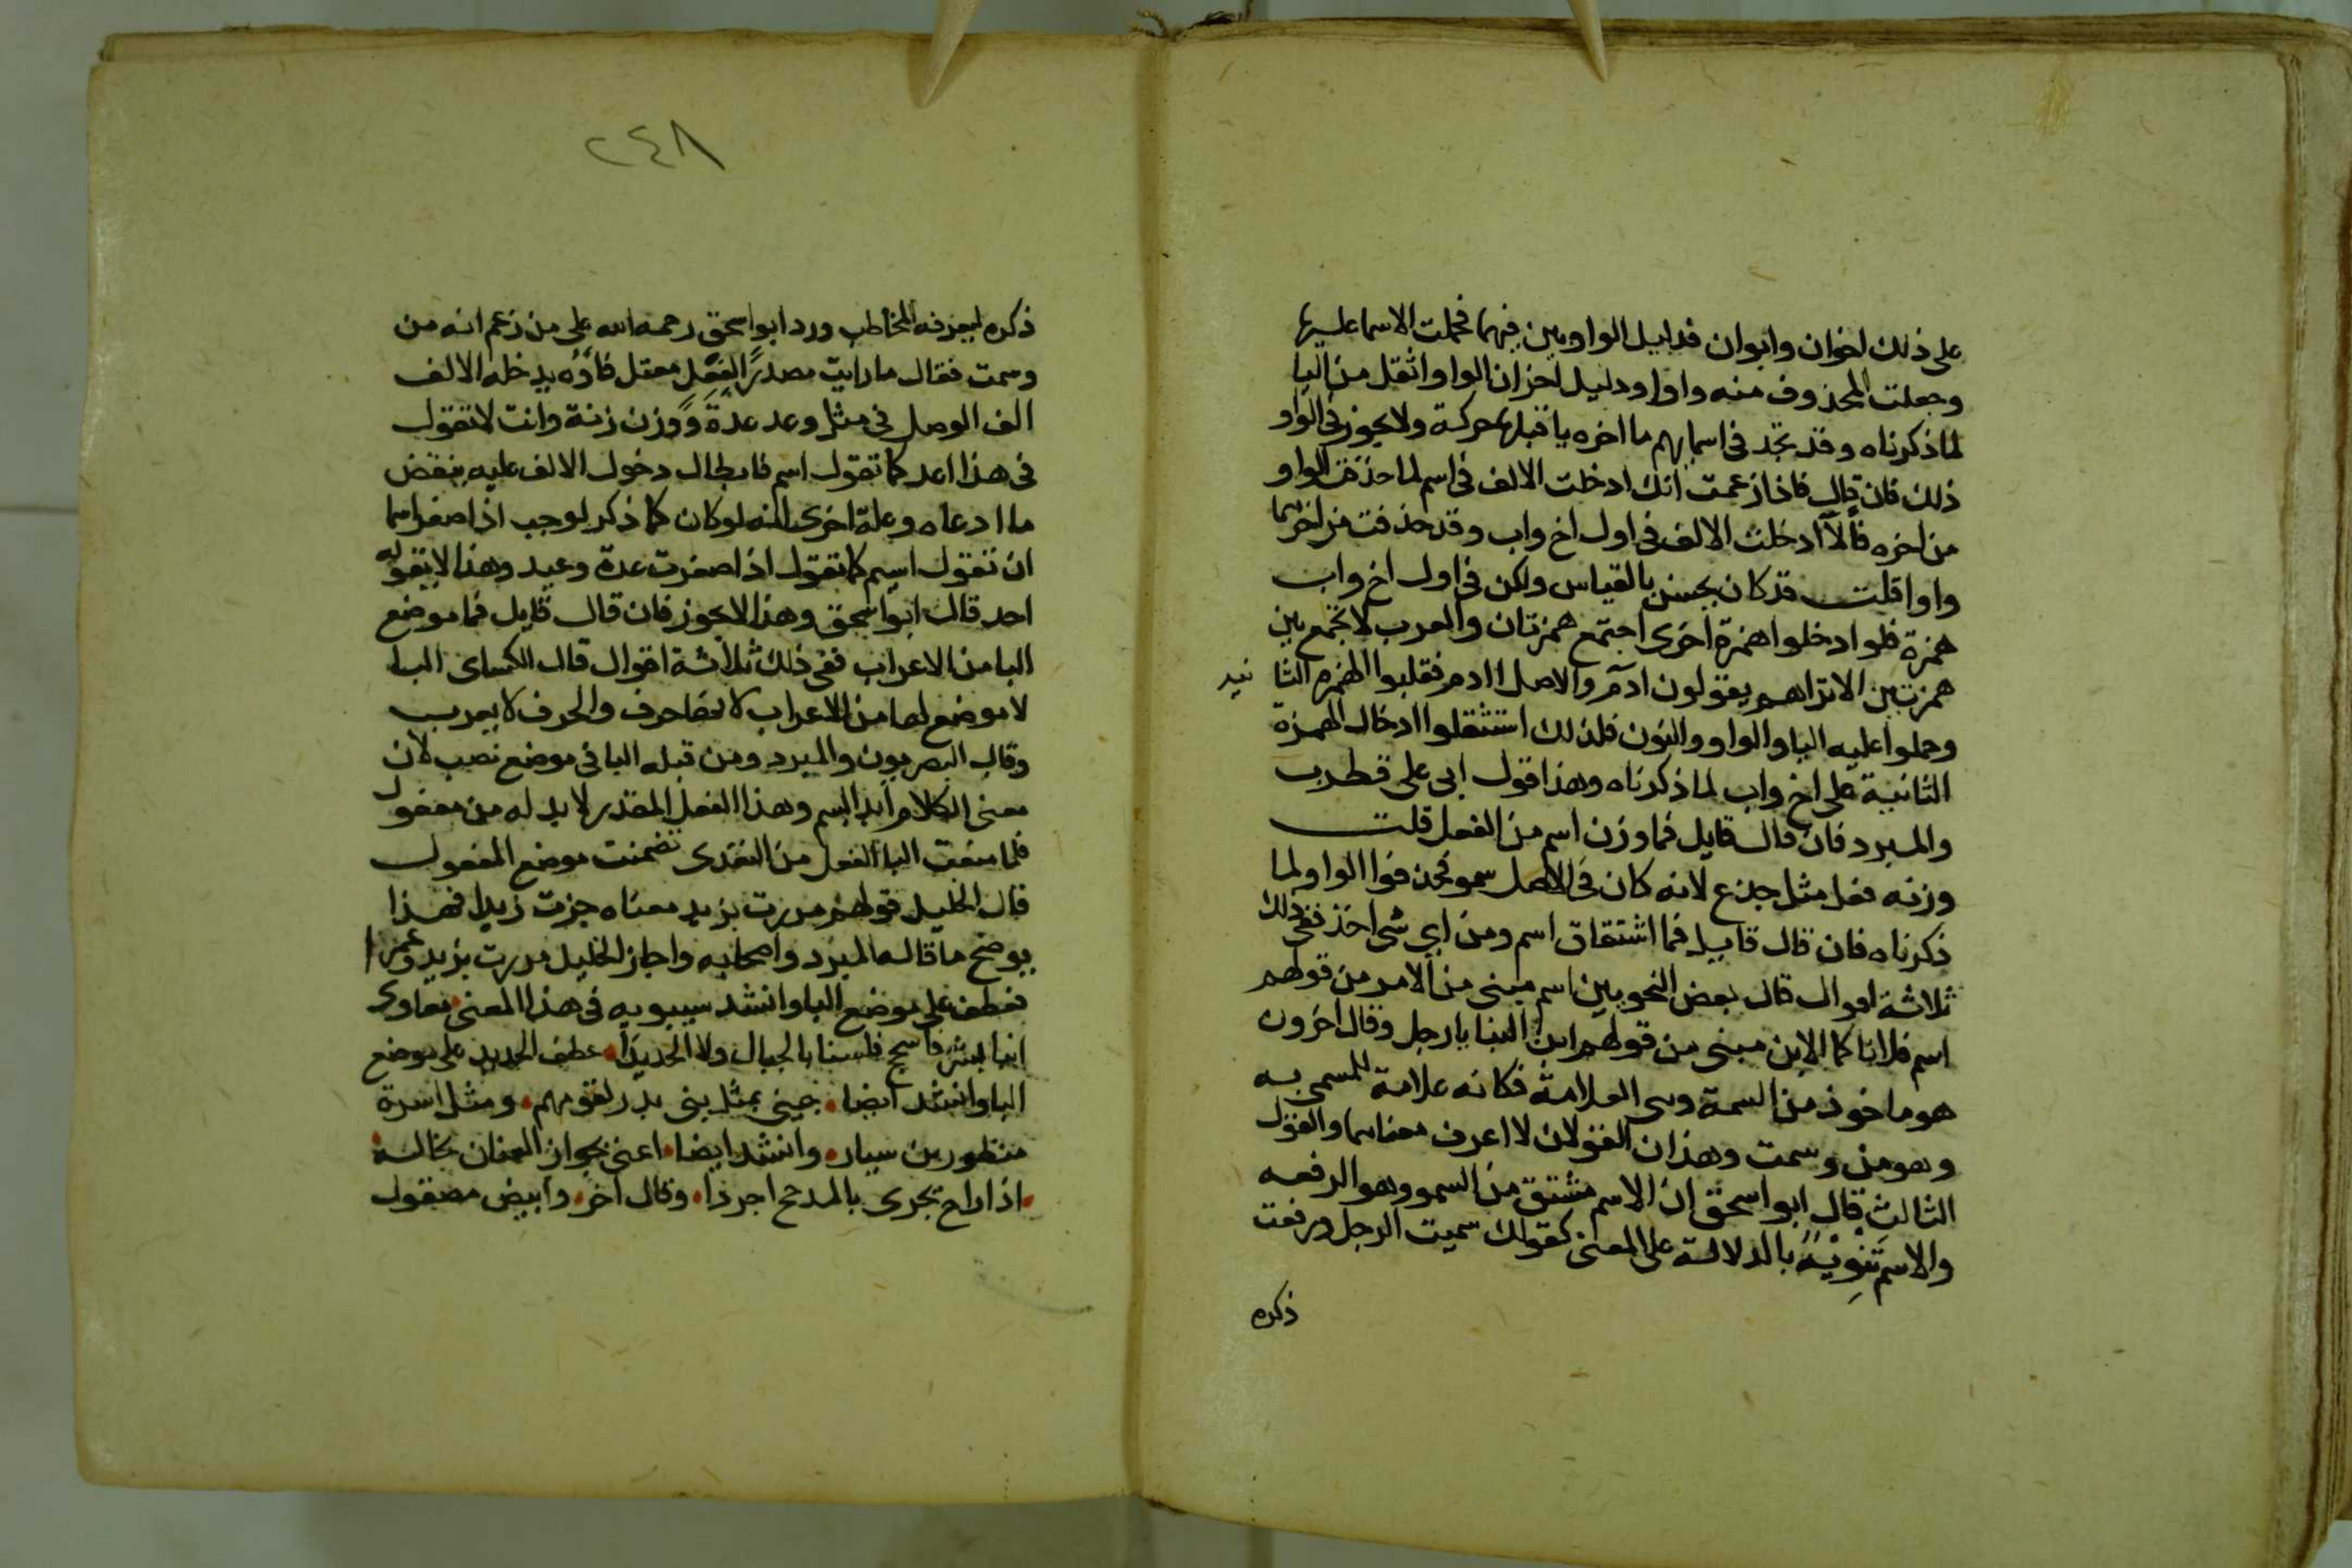 على ذلك اخوان وابوان فدليل الواو بين فيهما فحملت الاسما عليها
وجعلت المحذوف منه واوا ودليل اخر ان الواو اثقل من اليا
لما ذكرناه وقد تجد في اسمايهم ما اخره يا قبلها حركة ولا يجوز في الواو
ذلك فان قال فاذا زعمت انك ادخلت الالف في اسم لما حذفت الواو
من اخره فالا ادخلت الالف في اول اخ واب وقد حذفت من اخرهما
واوا قلت قد كان يحسن بالقياس ولكن في اول اخ واب
همزة فلو ادخلوا همزة اخرى اجتمع همزتان والعرب لا تجمع بين
همزتين الا تراهم يقولون ادم والاصل اادم فقلبوا الهمزه الثا
نيه
وحملوا عليه اليا والواو والنون فلذلك استثقلوا ادخال الهمزة
الثانية على اخ واب لما ذكرناه وهذا قول ابي علي قطرب
والمبرد فان قال قايل فما وزن اسم من الفعل قلت
وزنه فعل مثل جذع لانه كان في الاصل سمو فحذفوا الواو لما
ذكرناه فان قال قايل فما اشتقاق اسم ومن اي شي اخذ ففي ذلك
ثلاثة اقوال قال بعض النحويين اسم مبني من الامر من قولهم
اسم فلانا كما الابن مبني من قولهم ابن البنا يا رجل وقال اخرون
هو ماخوذ من السمة وهي العلامة فكانه علامة للمسمى به
وهو من وسمت وهذان القولان لا اعرف معناهما والقول
الثالث قال ابو اسحق ان الاسم مشتق من السمو وهو الرفعه
والاسم تنويه بالدلالة على المعنى كقولك سميت الرجل ورفعت
ذكره
٢٤٨
ذكره ليعرفه المخاطب ورد ابو اسحق رحمه الله على من زعم انه من
وسمت فقال ما رايت مصدرا لفعل معتل فاؤه يدخله الالف
الف الوصل في مثل وعد عدة ووزن زنة وانت لا تقول
في هذا اعد كما تقول اسم فابطال دخول الالف عليه ينقض
ما ادعاه وعلة اخرى انه لو كان كما ذكر لوجب اذا صغر اسما
ان تقول اسيم كما تقول اذا صغرت عدة وعيد وهذا لا يقوله
احد قال ابو اسحق وهذا لا يجوز فان قال قايل فما موضع
البا من الاعراب ففي ذلك ثلاثة اقوال قال الكساى البا
لا موضع لها من الاعراب لانها حرف والحرف لا يعرب
وقال البصريون والمبرد ومن قبله البا في موضع نصب لان
معنى الكلام ابدا بسم وهذا الفعل المقدر لا بد له من مفعول
فلما منعت البا الفعل من التعدى تضمنت موضع المفعول
قال الخليل قولهم مررت بزيد معناه جزت زيدا فهذا
يوضح ما قاله المبرد واصحابه واجاز الخليل مررت بزيد وعمرا
فعطف على موضع البا وانشد سيبويه في هذا المعنى معاوى
اننا بشر فاسجح فلسنا بالجبال ولا الحديدا عطف الحديد على موضع
البا وانشد ايضا جيني بمثل بني بدر لقومهم ومثل اسرة
منظور بن سيار وانشد ايضا اعني بخوار العنان تخاله
اذا راح تجرى بالمدجح اجردا وقال اخر وابيض مصقول